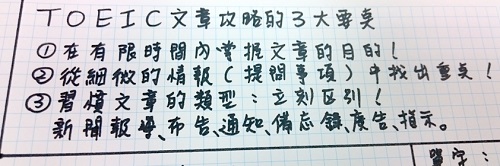 TOEIC文章攻略的3大要点
①在有限時間內掌握文章的目的!
②從細微的情報(提問事項)中找出重点!
③習慣文章的類型:立刻区别!
新聞報導、布告、通知、備忘錄、廣告、指示。
單字: